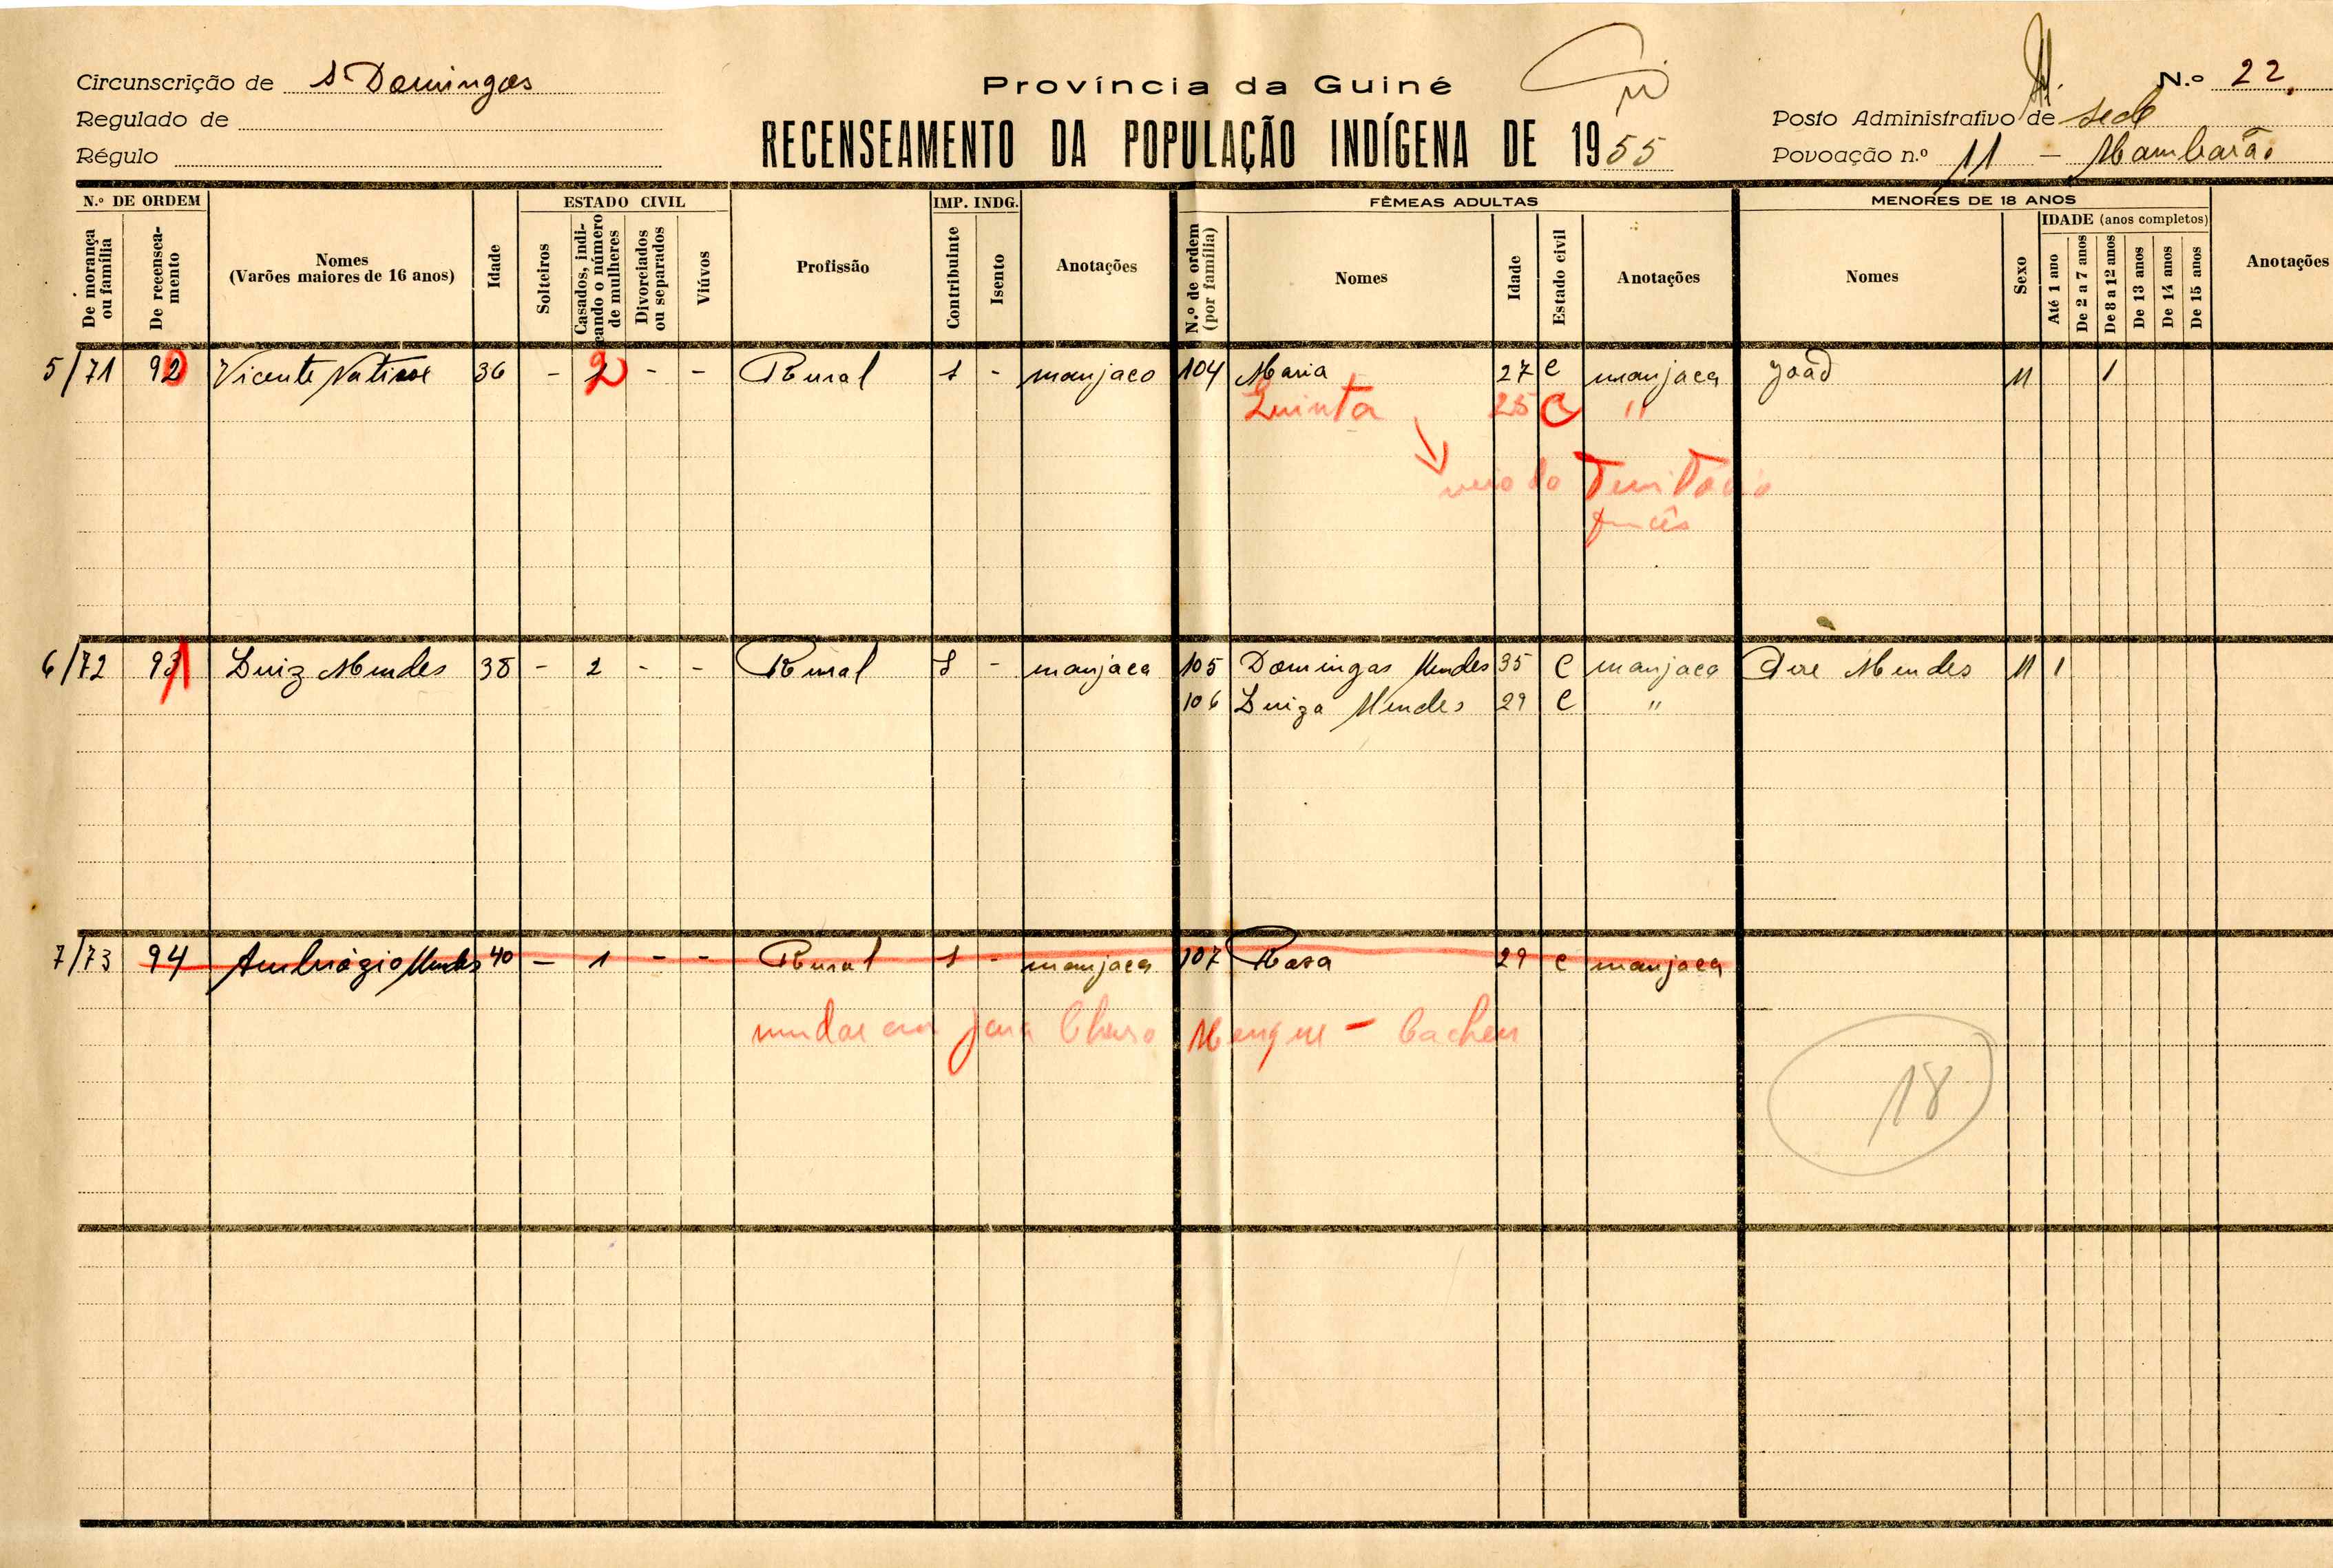 Circunscrição de S. Domingos
Província da Guiné
N.º 22
Regulado de
Posto Administrativo de sede
Régulo
RECENSEAMENTO DA POPULAÇÃO INDÍGENA DE 1955
Povoação n.º 11 -
N.º DE ORDEM
ESTADO CIVIL
IMP. INDG.
FÊMEAS ADULTAS
MENORES DE 18 ANOS
De morança ou família
De recenseamento
Nomes (Varões maiores de 16 anos)
Idade
Solteiros
Casados, indicando o número de mulheres
Divorciados ou separados
Viúvos
Profissão
Contribuinte
Isento
Anotações
N.º de ordem (por família)
Nomes
Idade
Estado civil
Anotações
Nomes
Sexo
IDADE (anos completos)
Até 1 ano
De 2 a 7 anos
De 8 a 12 anos
De 13 anos
De 14 anos
De 15 anos
Anotações
5/71 92 Vicente 36 - 2 - - Rural 1 - manjaco 104 Maria 27 C manjaca João M 1
Quinta 25 C "
veio do Território
francês
6/72 93 Luiz Mendes 38 - 2 - - Rural 1 - manjaca 105 Domingas Mendes 35 C manjaca Mendes M 1
106 Luiza Mendes 29 C "
7/73 94 Ambrózio Mendes 40 - 1 - - Rural 1 - manjaca 107 Rosa 29 C manjaca
para Churo - Cacheu
18